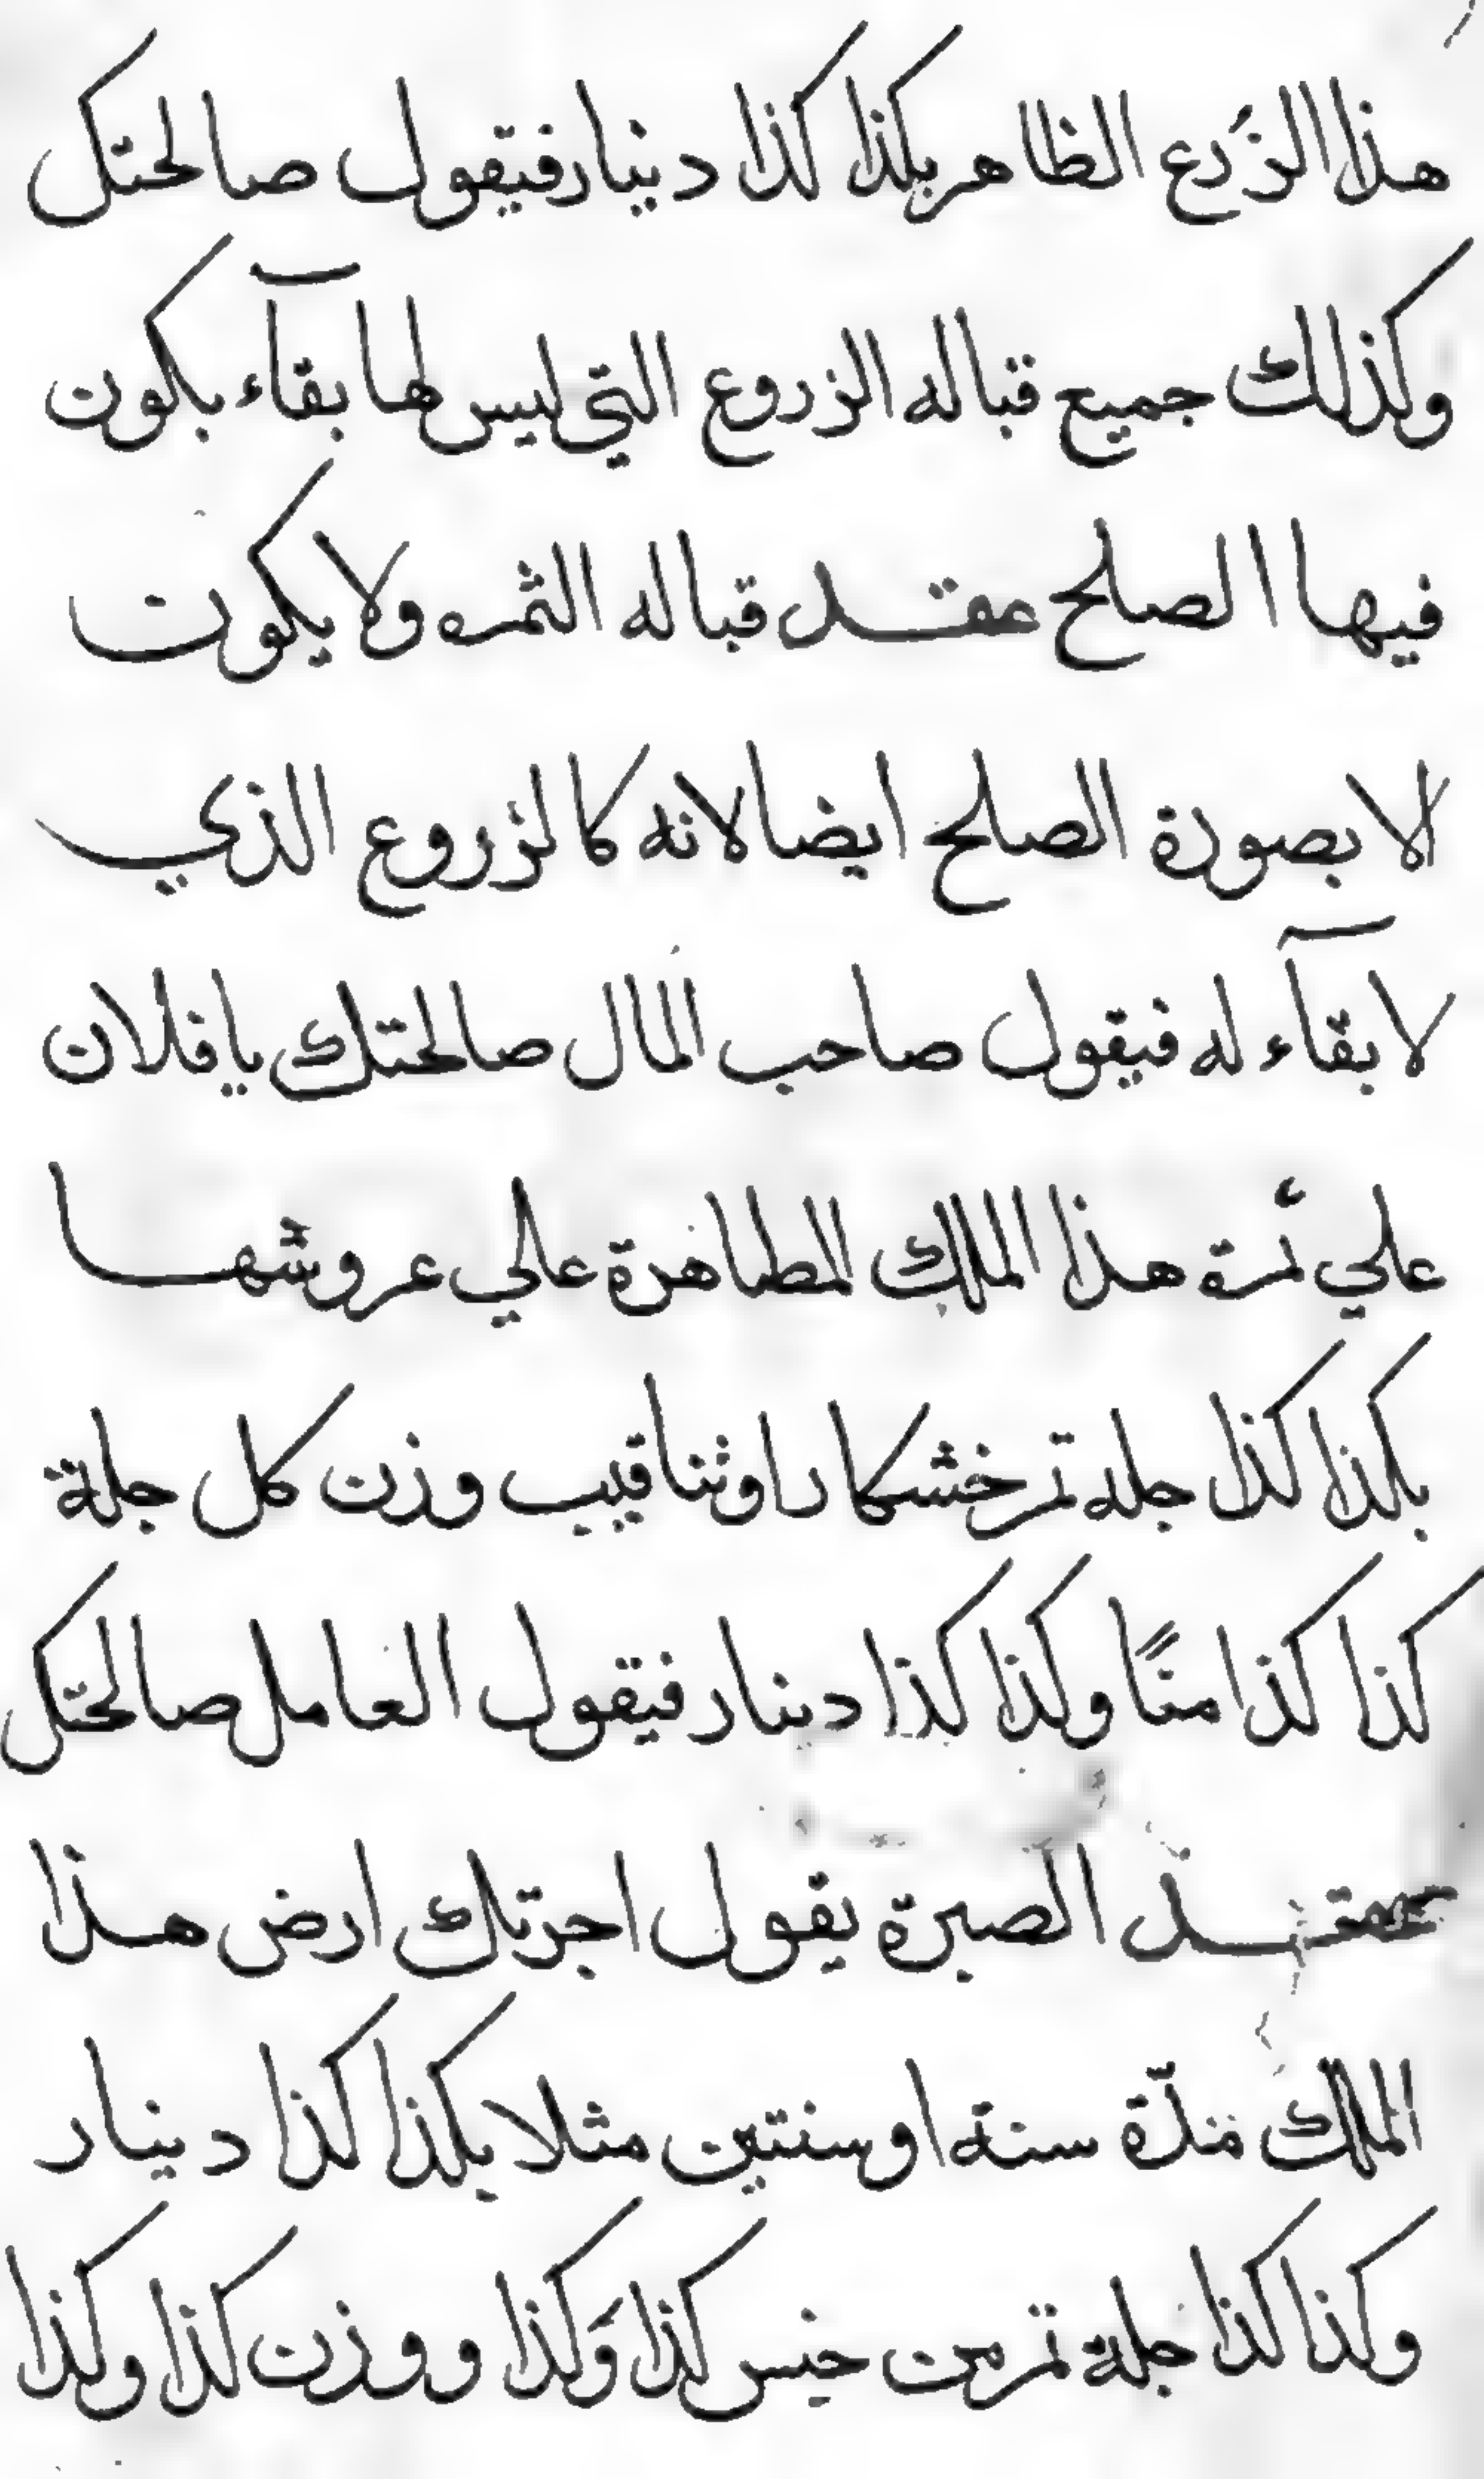 هذا الزرع الظاهر بكذا كذا دينار فيقول صالحتك
وكذلك جميع قباله الزروع التي ليس لها بقآء بكون
فيها الصلح عقد قباله الثمره ولا يكون
الا بصورة الصلح ايضا لانه كالزروع الذي
لا بقآء له فيقول صاحب المال صالحتك يا فلان
علي ثمرة هذا الملك المطاهرة علي عروشها
بكذا كذا جله تمر خشكارا وثناقيب وزن كل جلة
كذا كذا منًا وكذا كذا دينار فيقول العامل صالحتك
عقد الصبرة يقول اجرتك ارض هذا
الملك مدّة سنة او سنتين مثلا بكذا كذا دينار
وكذا كذا جلة تمر من جنس كذا وَكذا ووزن كذا وكذا